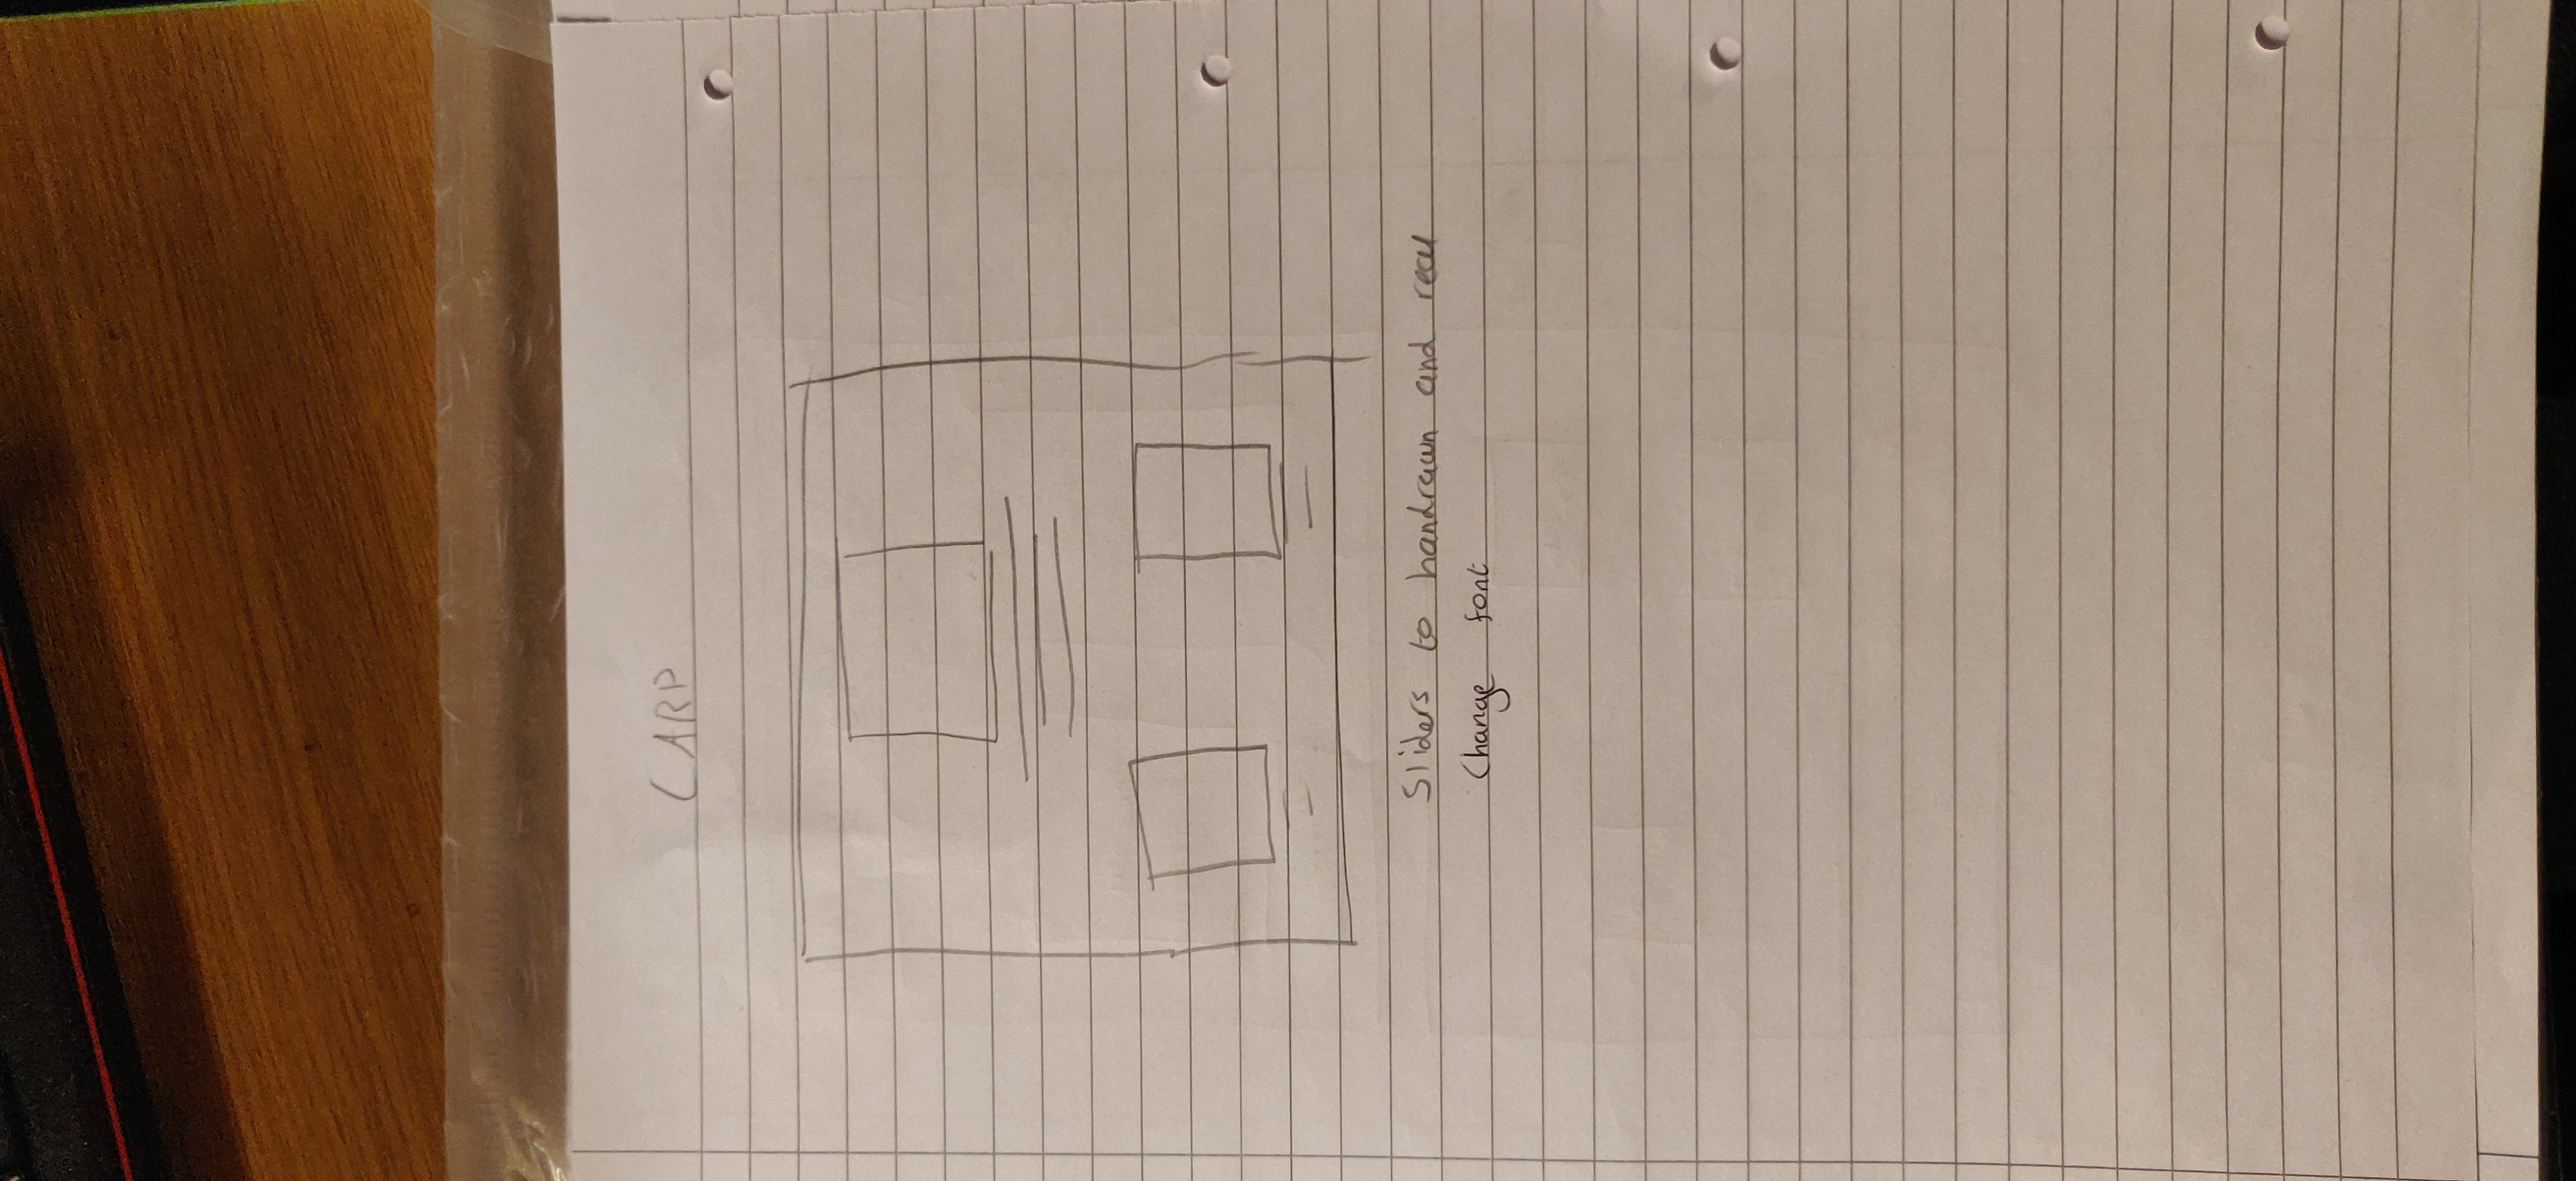 CARP
Sliders to handrawn and real
Change font